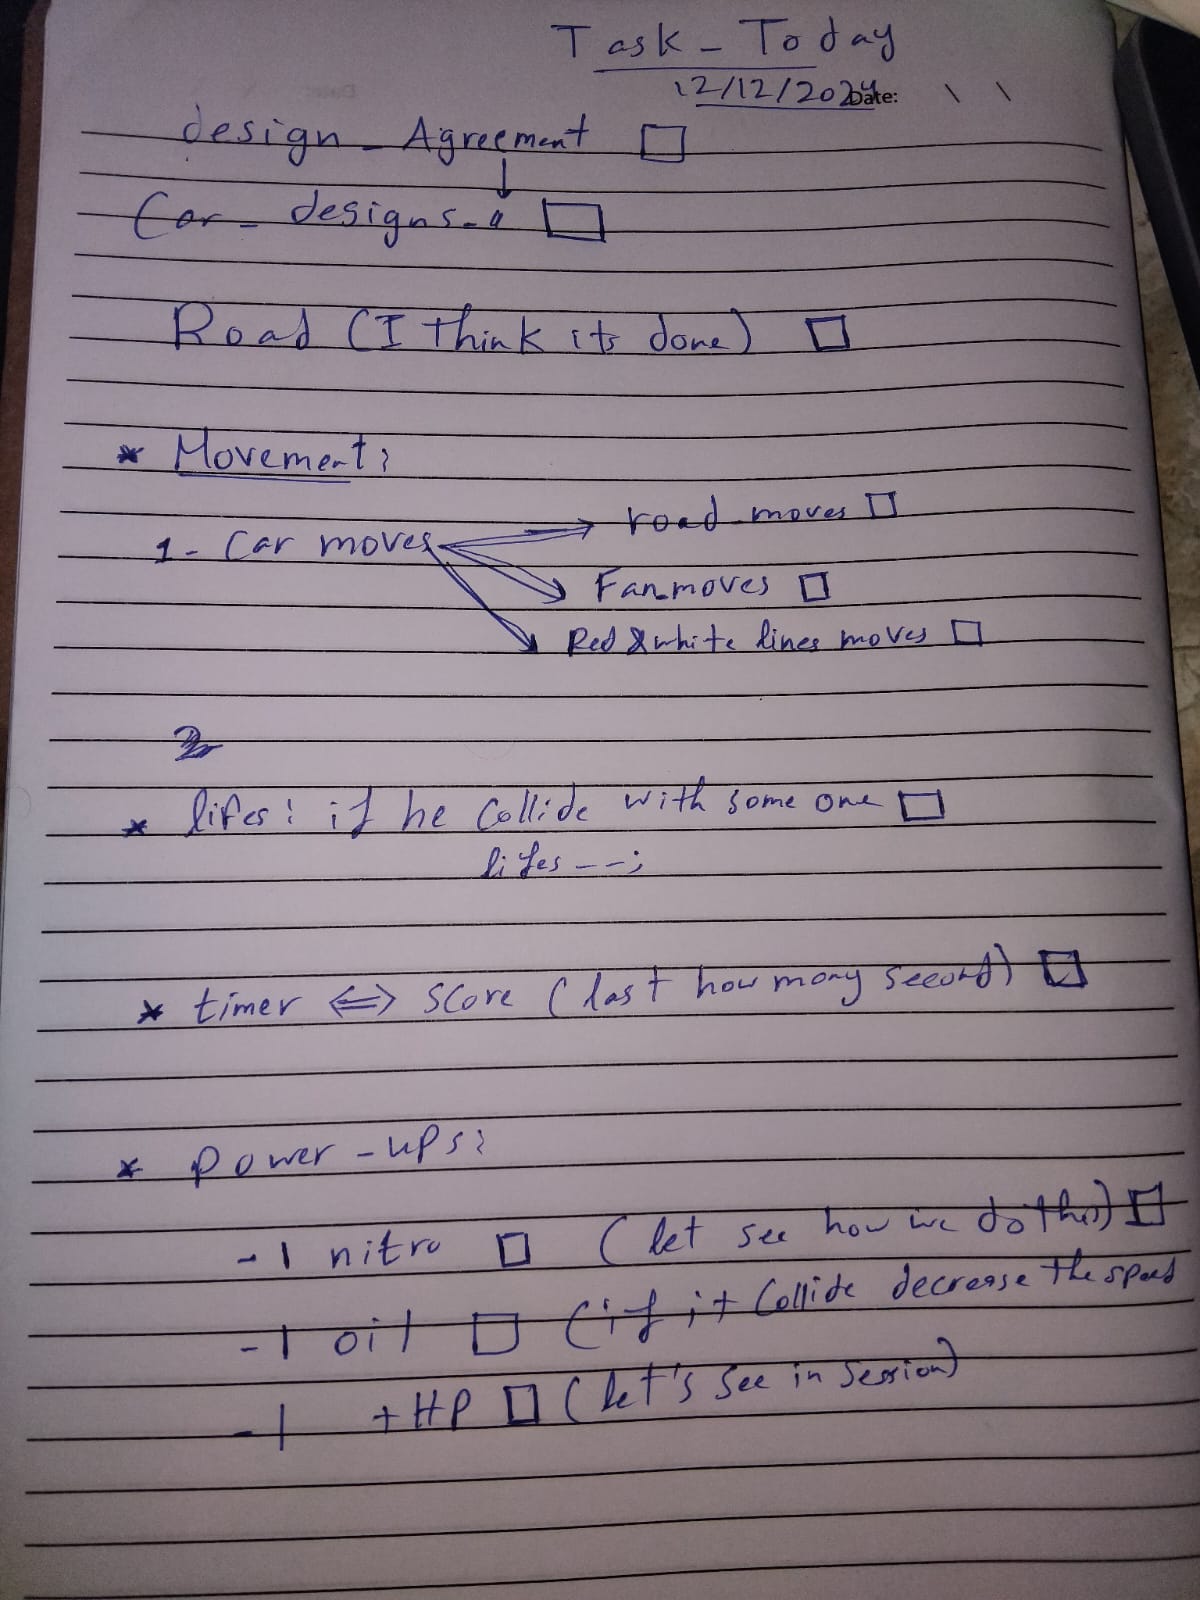 Task - Today
12/12/2024
Date: \ \
design - Agreement
Car - designs -
Road (I think its done)
* Movement:
1- Car moves
road moves
Fan moves
Red & white lines moves
* lifes: if he Collide with some one
lifes --;
* timer <=> score (last how many second)
* power-ups:
- 1 nitro (let see how we do this)
- 1 oil (if it Collide decrease the speed
- 1 +HP (let's see in session)